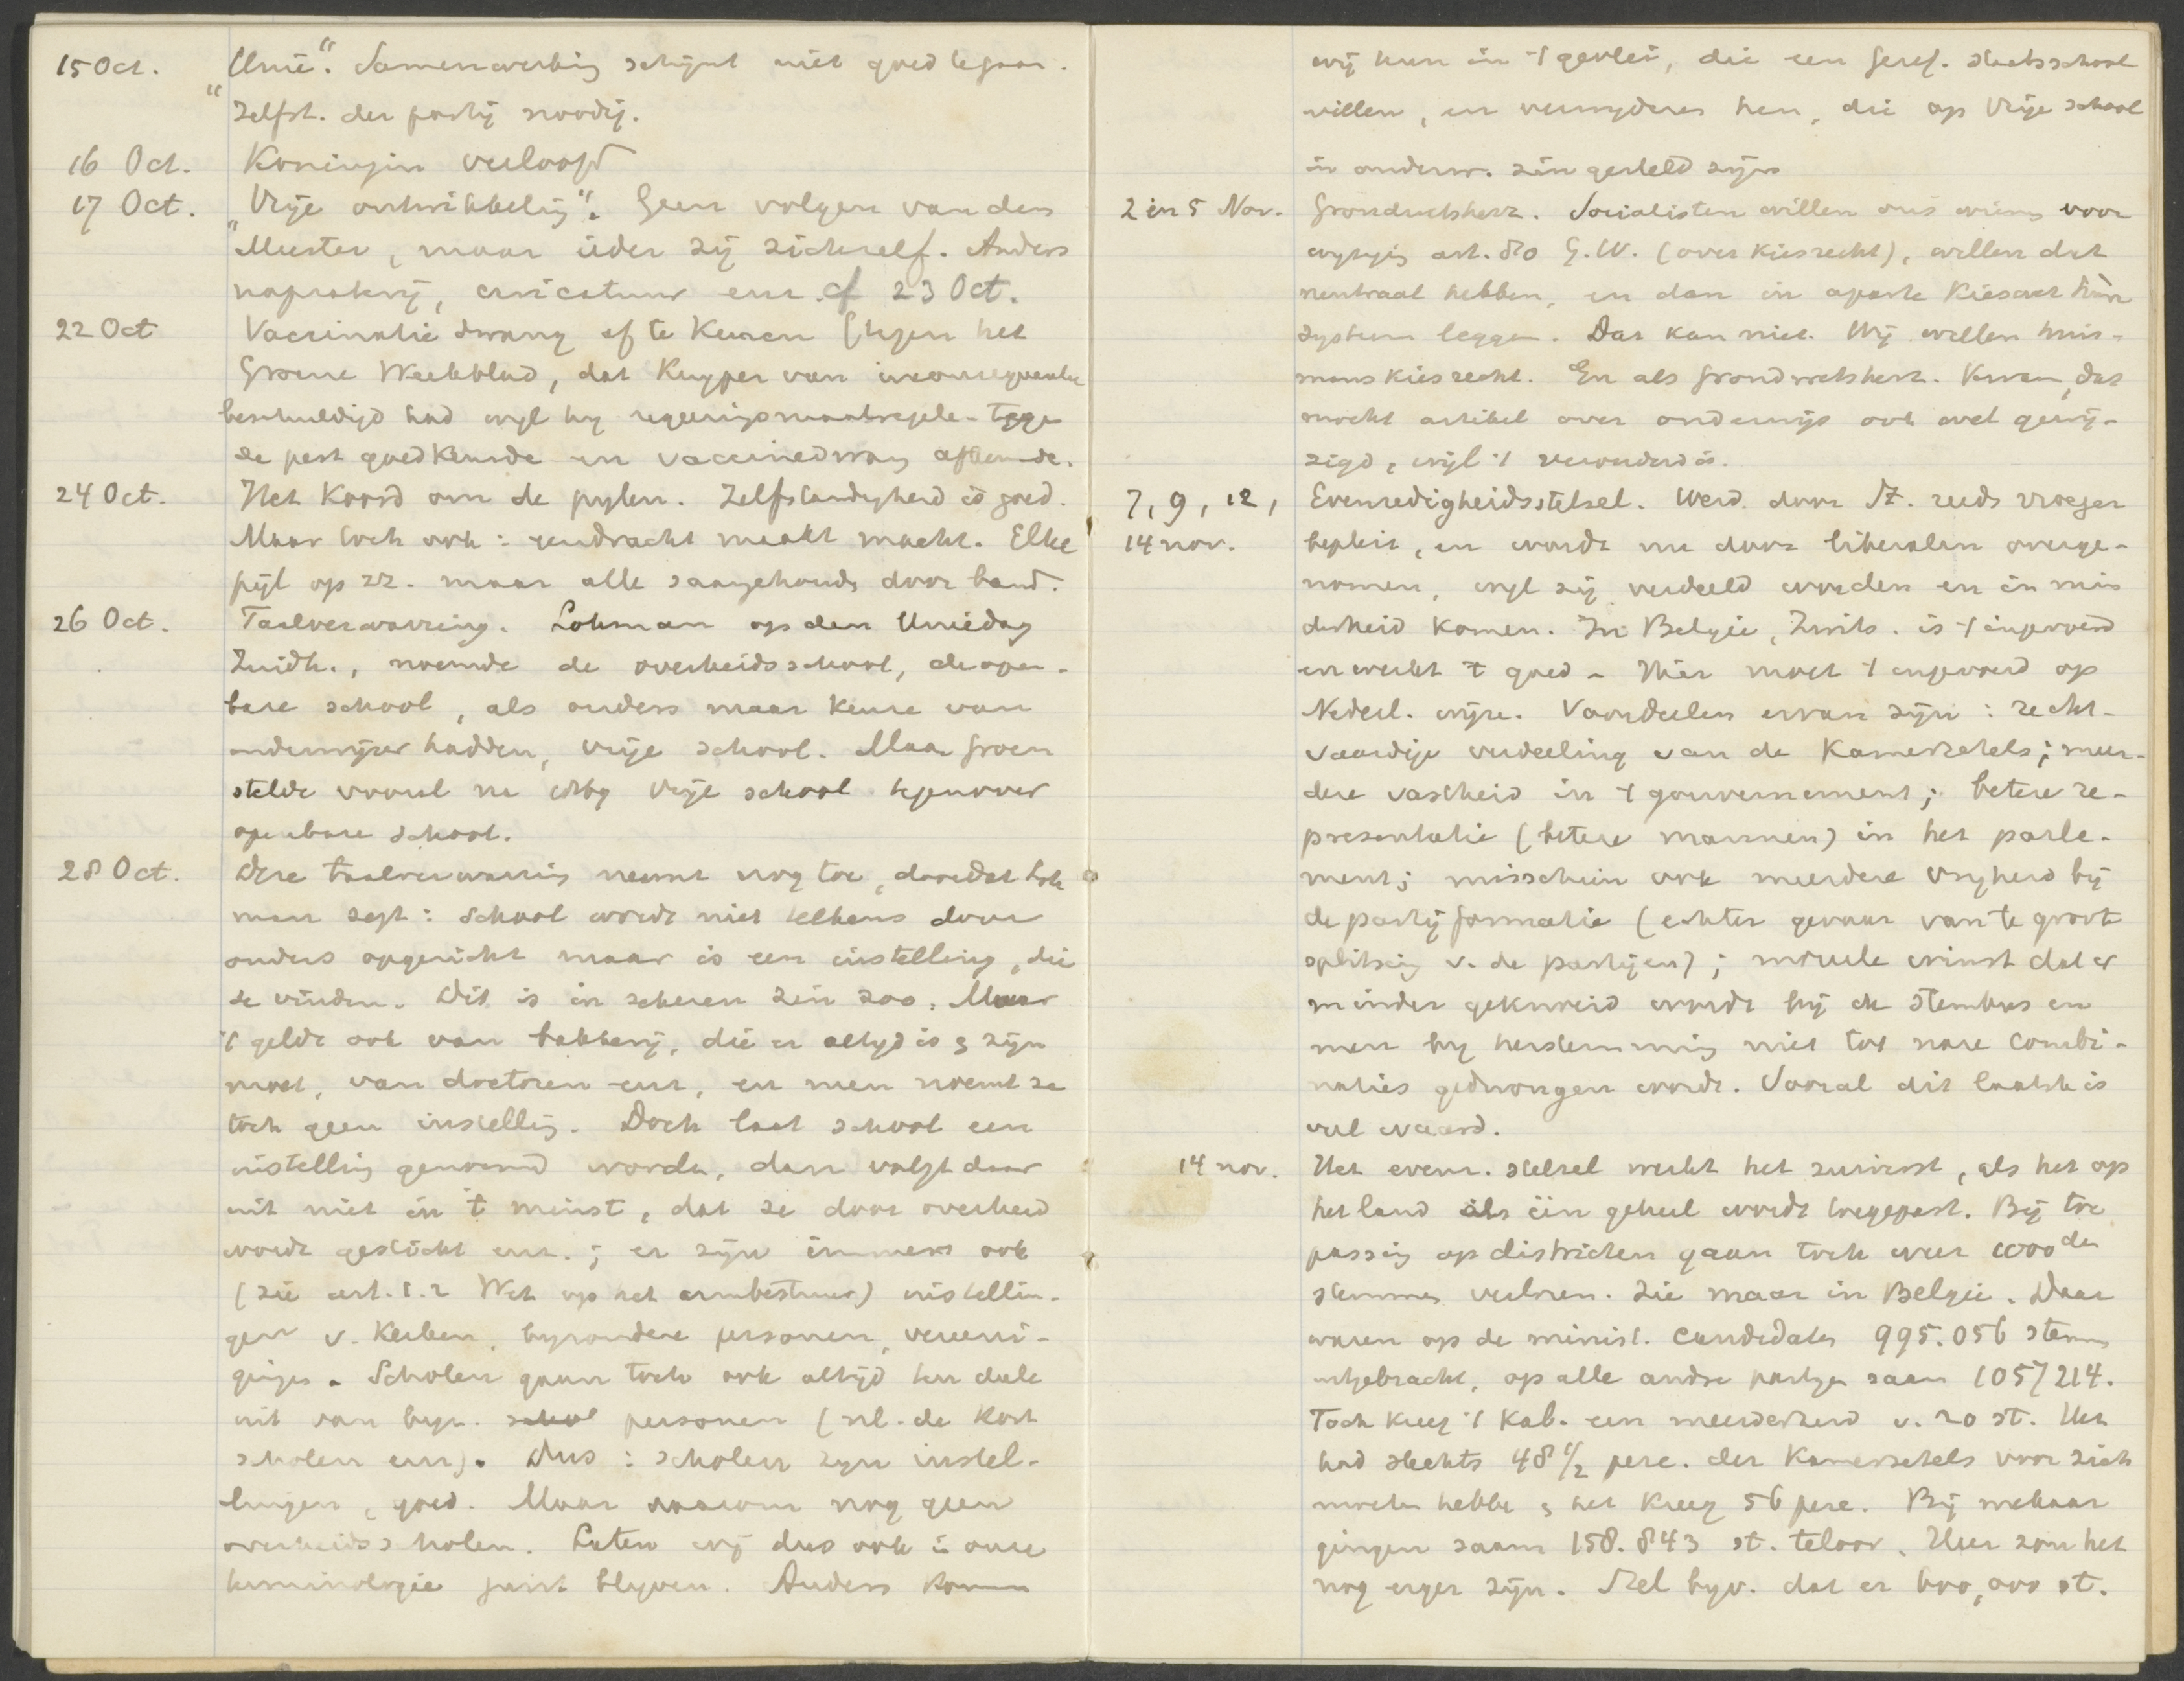 15 Oct. Unie". Samenwerking schijnt niet goed te gaan.
"Zelfst. der partij noodig.
16 Oct. Koningin verloofd
17 Oct. "Vrije ontwikkeling". Geen volgen van den
"Meester, maar ieder zij zichzelf. Anders
napraterij, caricatuur enz. cf 23 Oct.
22 Oct Vaccinatie dwang af te keuren (tegen het
Groene Weekblad, dat Kuyper van inconsequentie
beschuldigd had wyl hy regeeringsmaatregelen tegen
de pest goedkeurde en vaccinedwang afkeurde.
24 Oct. Het koord om de pylen. Zelfstandigheid is goed.
Maar toch ook: eendracht maakt macht. Elke
pijl op zz. maar alle saamgehouden door band.
26 Oct. Taalverwarring. Lohman op den Uniedag
Zuidh., noemde de overheidsschool, de open-
bare school, als ouders maar keuze van
onderwijzer hadden, vrije school. Maar Groen
stelde vooral na 1857 vrije school tegenover
openbare school.
28 Oct. Deze taalverwarring neemt nog toe, doordat Loh
man zegt: School wordt niet telkens door
ouders opgericht maar is een instelling, die
ze vinden. Dit is in zekeren zin zoo. Maar
't geldt ook van bakkerij, die er altyd is & zijn
moet, van doctoren enz, en men noemt ze
toch geen instelling. Doch laat school een
instelling genoemd worden, dan volgt daar
uit niet in 't minst, dat ze door overheid
wordt gesticht enz.; er zijn immers ook
(zie art. 1.2 Wet op het armbestuur) instellin-
gen v. kerken, byzondere personen, vereeni-
gingen. Scholen gaan toch ook altijd ten deele
uit van byz. school personen (nl. de kost
scholen enz). Dus: scholen zyn instel-
lingen, goed. Maar daarom nog geen
overheidsscholen. Laten wij dus ook in onze
terminologie juist blyven. Anders komen
wij hun in 't gevlei, die een Geref. staatsschool
willen, en verwyderen hen, die op Vrije school
in onderw. zin gesteld zijn
2 en 5 Nov. Grondwetsherz. Socialisten willen ons winnen voor
wyziging art. 80 G.W. (over kiesrecht), willen dat
neutraal hebben, en dan in aparte kieswet hún
systeem leggen. Dat kan niet. Wij willen huis-
manskiesrecht. En als Grondwetsherz. kwam, dat
mocht artikel over onderwijs ook wel gewij-
zigd, wijl 't verouderd is.
7, 9, 12, Evenredigheidsstelsel. Werd door St. reeds vroeger
14 nov. bepleit, en wordt nu door liberalen overge-
nomen, wyl zij verdeeld worden en in min
derheid komen. In België, Zwits. is 't ingevoerd
en werkt 't goed. Hier moet 't ingevoerd op
Nederl. wijze. Voordeelen ervan zijn: recht-
vaardige verdeeling van de Kamerzetels; meer-
dere vastheid in 't gouvernement; betere re-
presentatie (betere mannen) in het parle-
ment; misschien ook meerdere vryheid bij
de partijformatie (echter gevaar van te groote
splitsing v. de partijen); moreele winst dat er
minder geknoeid wordt bij de stembus en
men by herstemming niet tot nare combi-
naties gedwongen wordt. Vooral dit laatste is
veel waard.
14 nov. Het evenr. stelsel werkt het zuiverst, als het op
het land als één geheel wordt toegepast. Bij toe
passing op districten gaan toch weer 1000den
stemmen verloren. Zie maar in België. Daar
waren op de minist. candidaten 995.056 stemm
uitgebracht, op alle andre partyen saam 1057214.
Toch kreeg 't Kab. een meerderheid v. 20 st. Het
had slechts 48 1/2 perc. der Kamerzetels voor zich
moeten hebben & het kreeg 56 perc. Bij mekaar
gingen saam 158.843 st. teloor. Hier zou het
nog erger zijn. Stel byv. dat er 600,000 st.